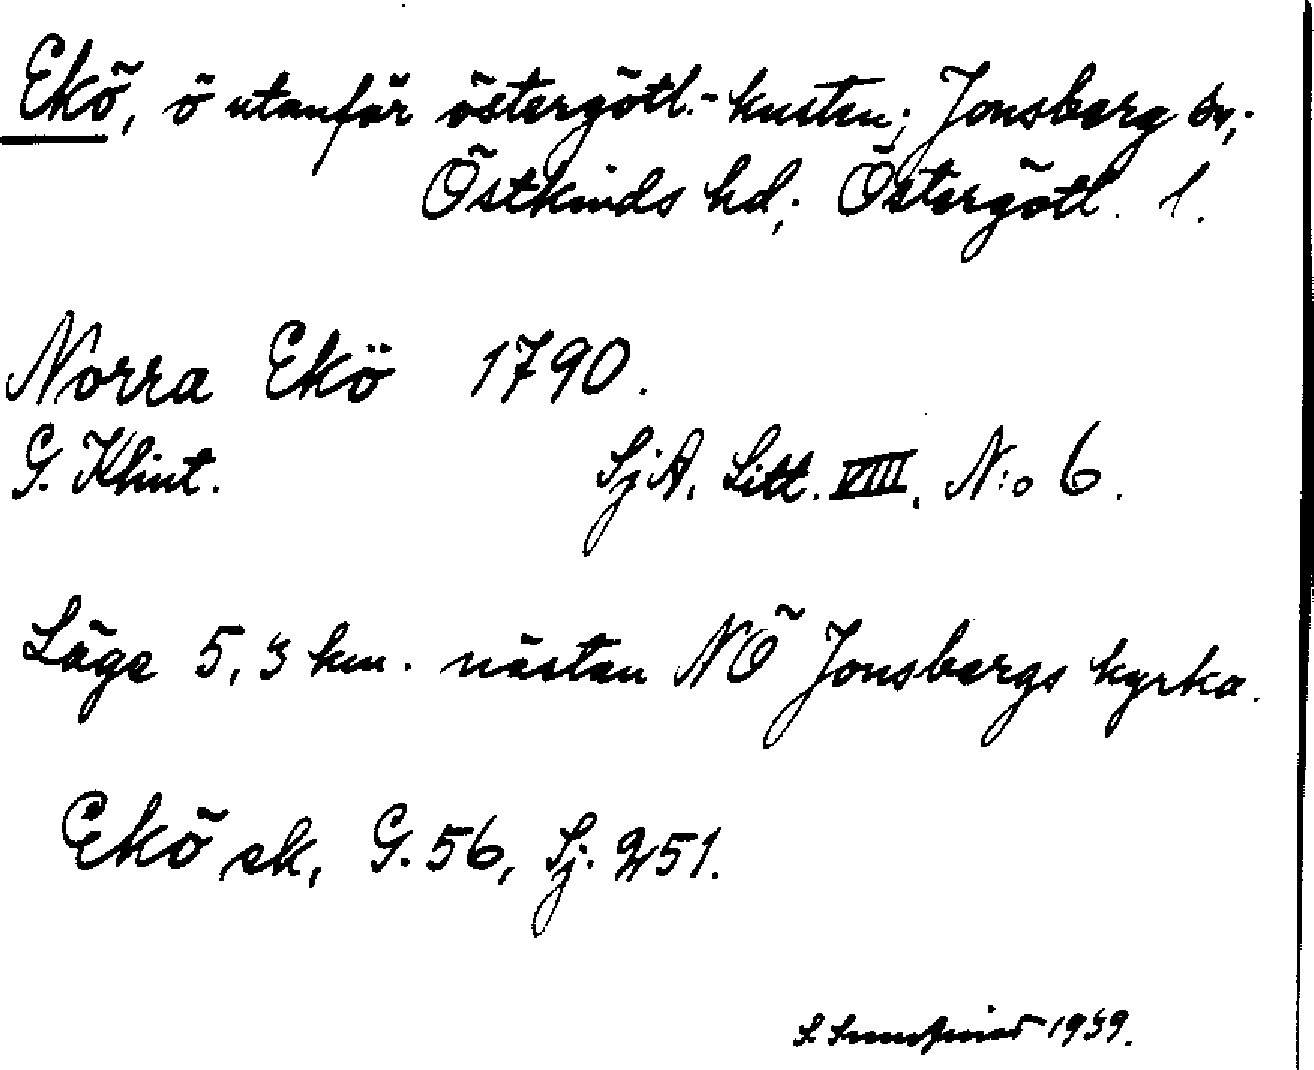 Ekö, ö utanför östergötl.-kusten; Jonsberg sn;
Östkinds hd; Östergötl. l.
Norra Ekö 1790.
G. Klint. SjA. Litt. VIII. N:o 6.
Läge 5,3 km. nästan NÖ Jonsbergs kyrka.
Ekö ek, G. 56, Sj. 251.
S. 1939.